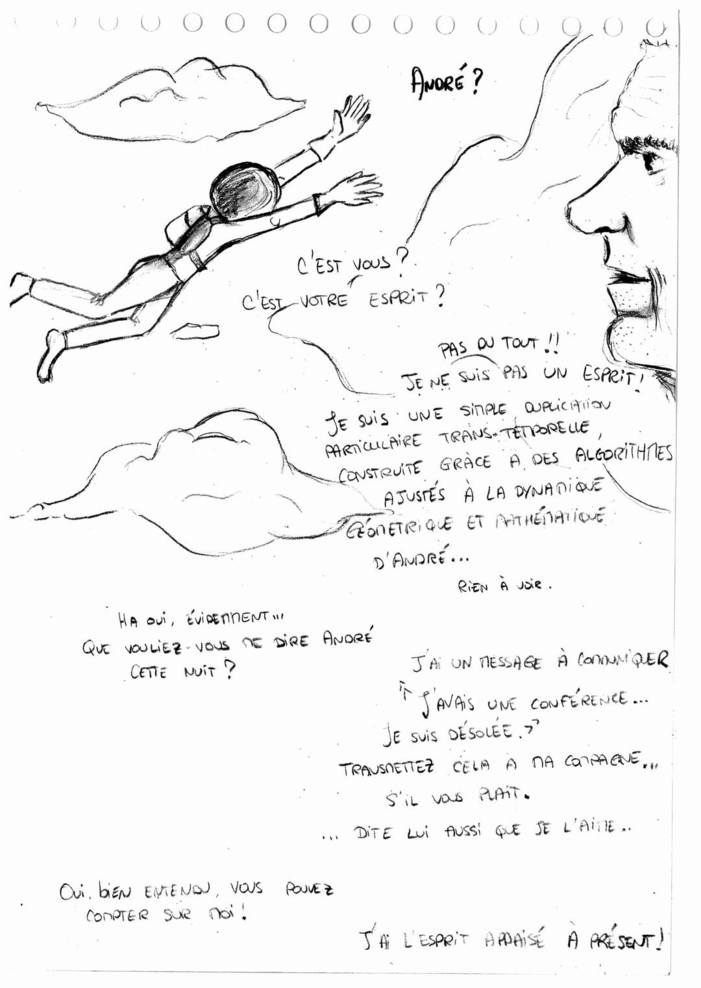 André?
C'est vous?
C'est votre esprit?
Pas du tout!!
Je ne suis pas un esprit!
Je suis une simple duplication
particulaire trans-temporelle,
construite grâce a des algorithmes
ajustés à la dynamique
géometrique et mathématique
d'André...
Rien à voir.
Ha oui, évidemment...
Que vouliez-vous me dire André
cette nuit?
J'ai un message à communiquer
"J'avais une conférence...
Je suis désolée."
Transmettez cela à ma compagne...
s'il vous plait.
... Dite lui aussi que je l'aime..
Oui, bien entendu, vous pouvez
compter sur moi!
J'ai l'esprit appaisé à présent!